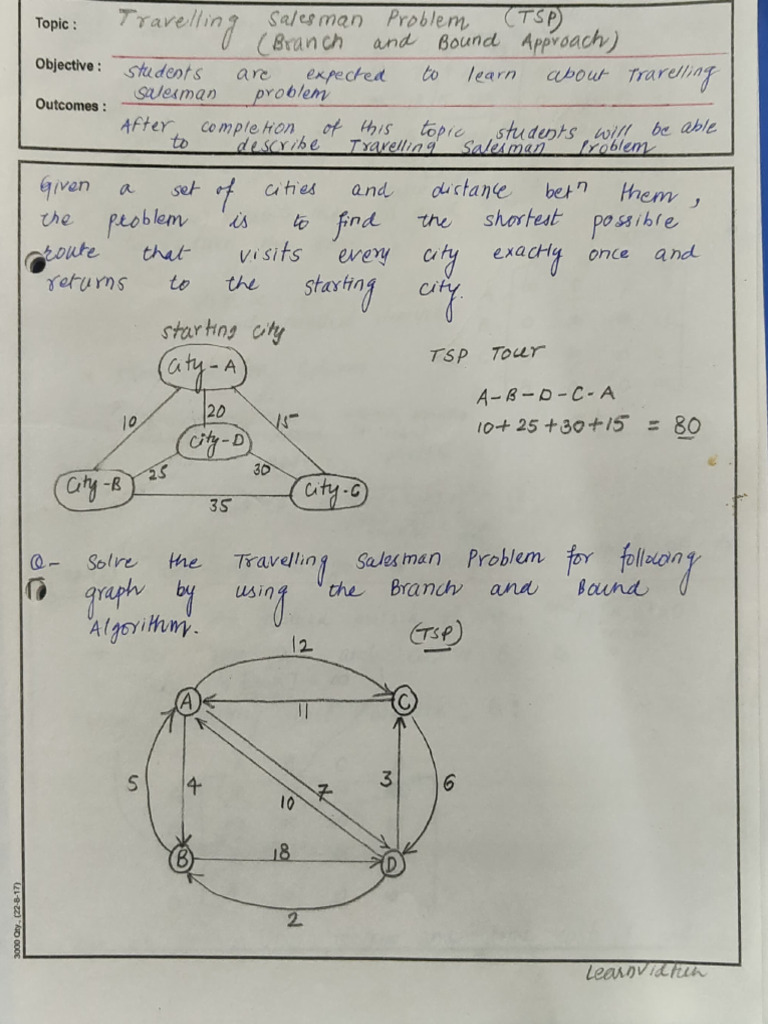 Topic : Travelling Salesman Problem (TSP)
(Branch and Bound Approach)
Objective : students are expected to learn about Travelling
salesman problem
Outcomes :
After completion of this topic students will be able
to describe Travelling Salesman Problem
Given a set of cities and distance betn them,
the problem is to find the shortest possible
route that visits every city exactly once and
returns to the starting city.
starting city
City-A
TSP Tour
A-B-D-C-A
10+25+30+15 = 80
10
20
15
City-D
25
30
City-B
City-C
35
Q- Solve the Travelling Salesman Problem for following
graph by using the Branch and Bound
Algorithm.
(TSP)
12
A
C
11
5
4
7
10
3
6
B
18
D
2
3000 Qty., (22-8-17)